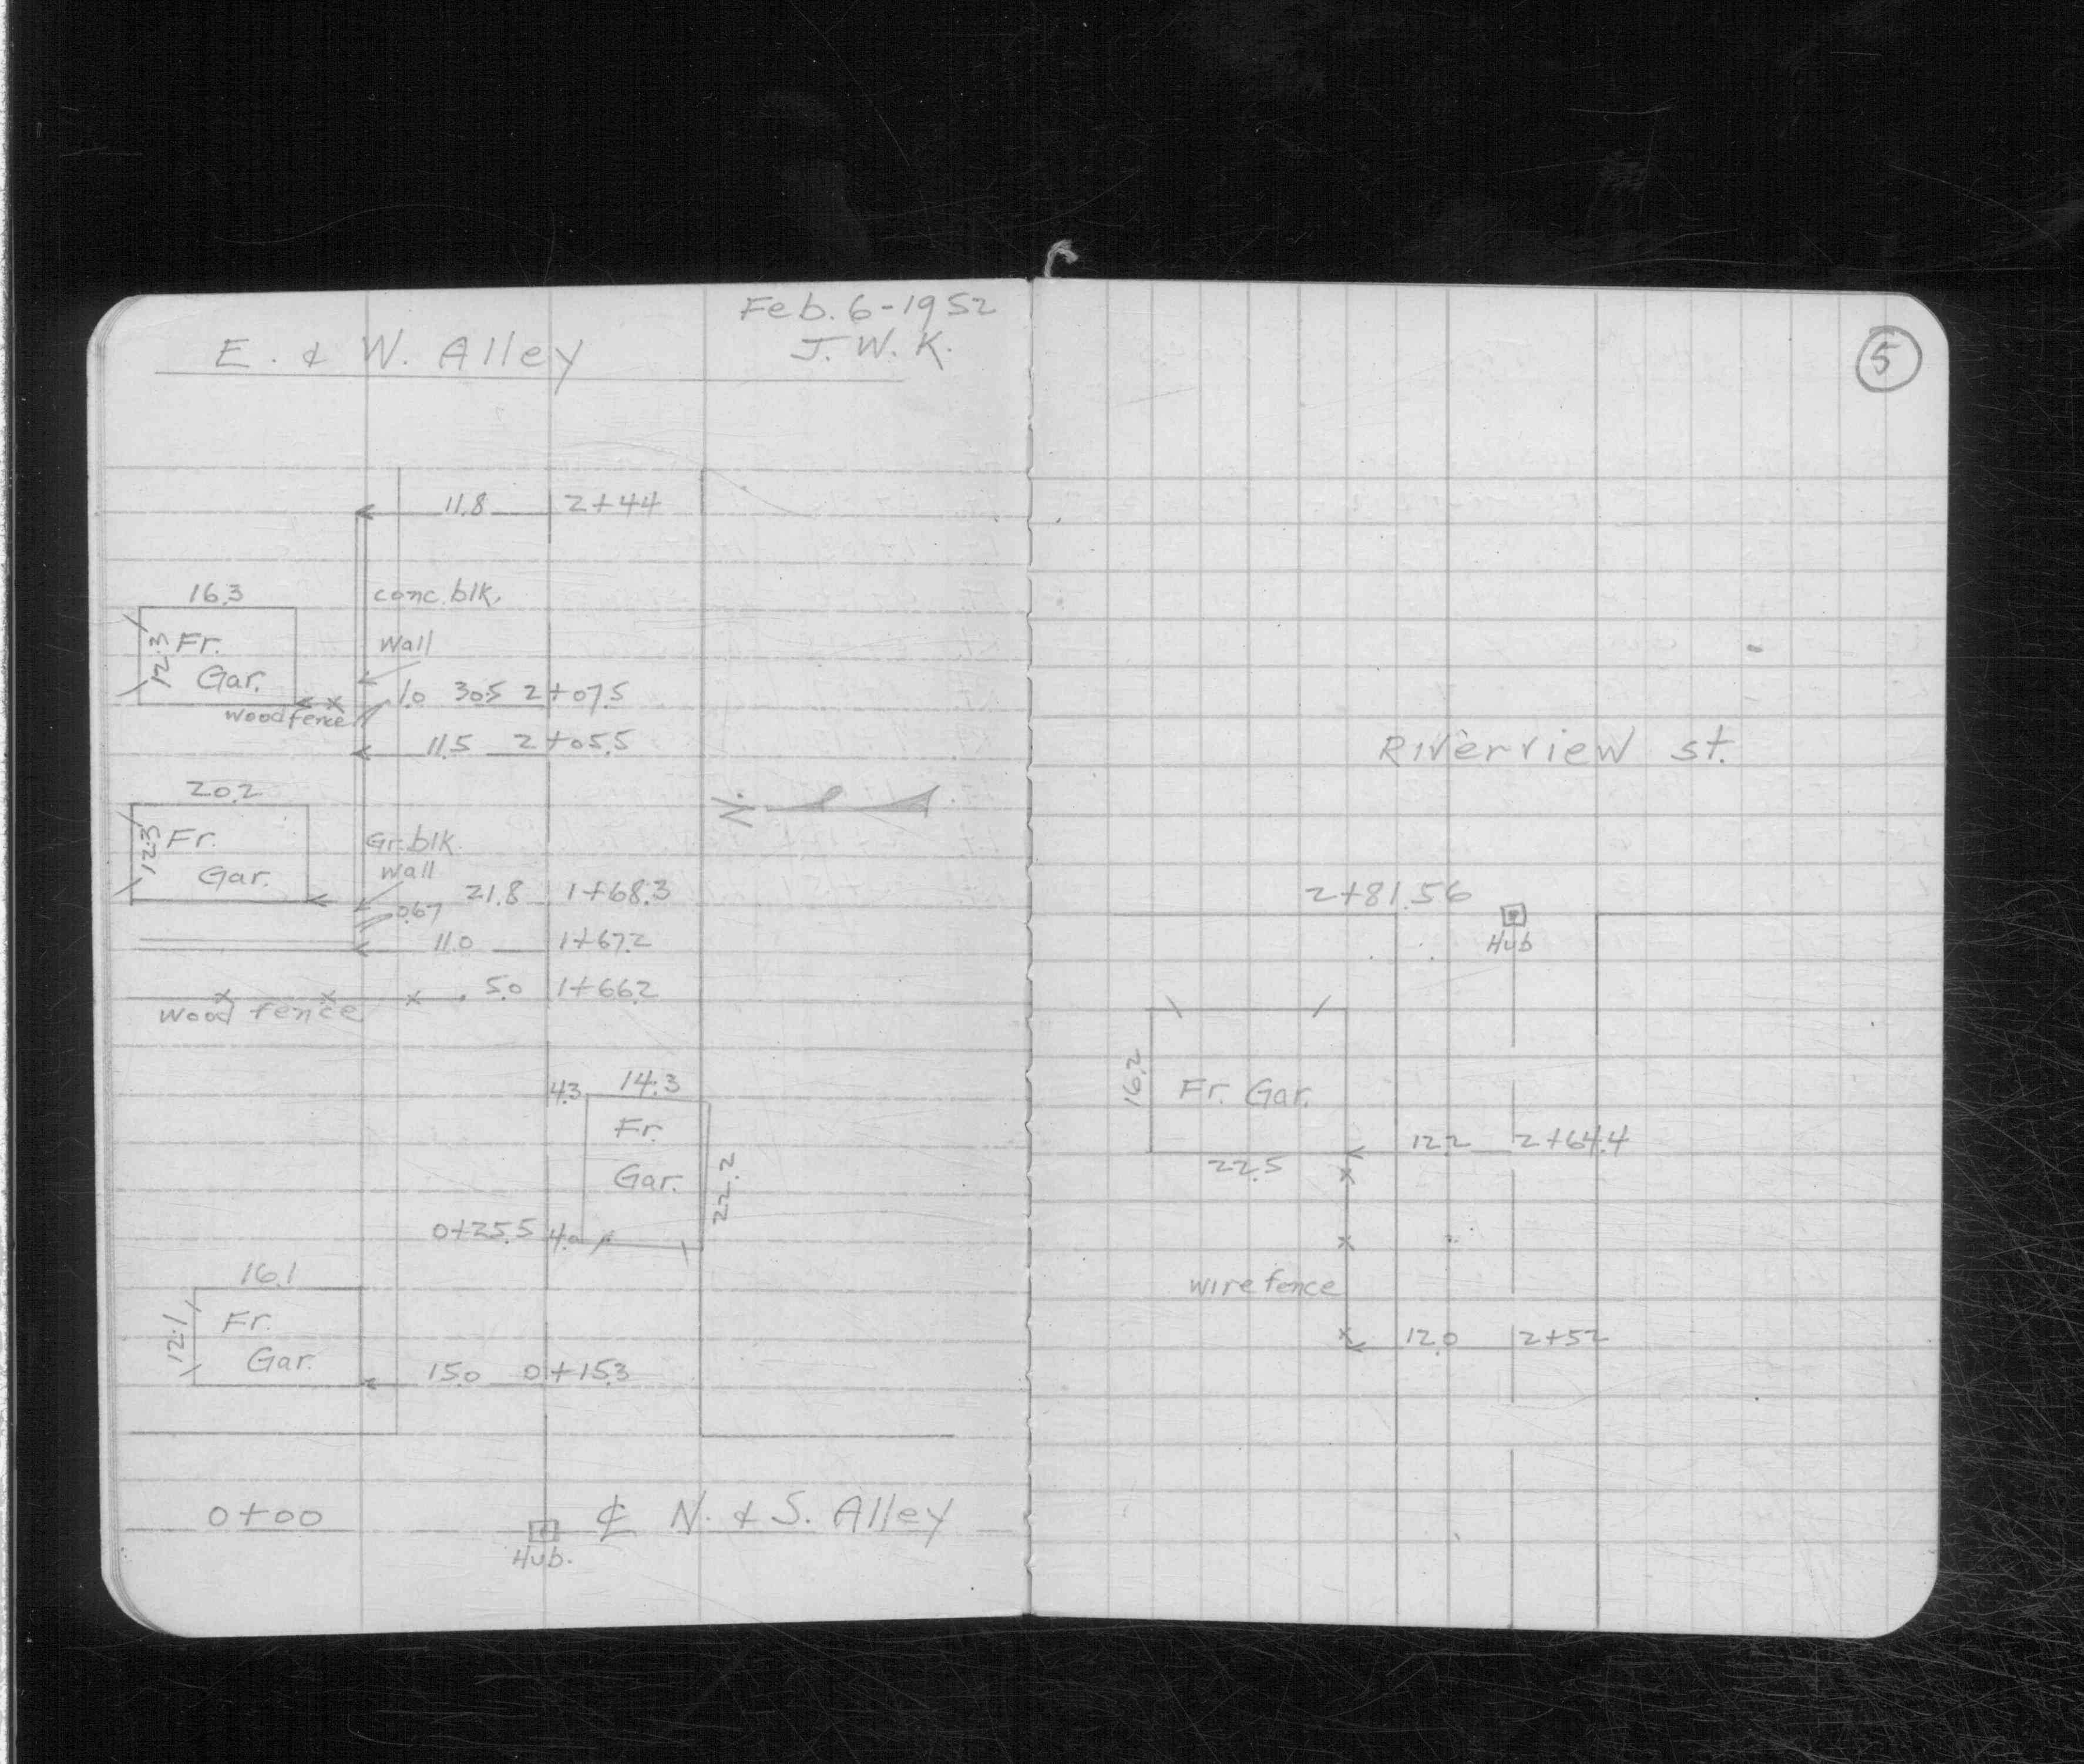 Feb. 6-1952
E. & W. Alley
J. W. K.
11.8 2+44
16.3
conc. blk.
Wall
12.3
Fr.
Gar.
1.0 30.5 2+07.5
wood fence
11.5 2+05.5
20.2
N.
12.3
Fr.
Gar.
Gr. blk
wall
21.8 1+68.3
0.67
11.0 1+67.2
5.0 1+66.2
wood fence
4.3 14.3
Fr.
Gar.
22.2
0+25.5 4.0
16.1
12.1
Fr.
Gar.
15.0 0+15.3
0+00
₵ N. & S. Alley
Hub.
5
Riverview st.
2+81.56
Hub
16.2
Fr. Gar.
12.2 2+64.4
22.5
wire fence
12.0 2+52